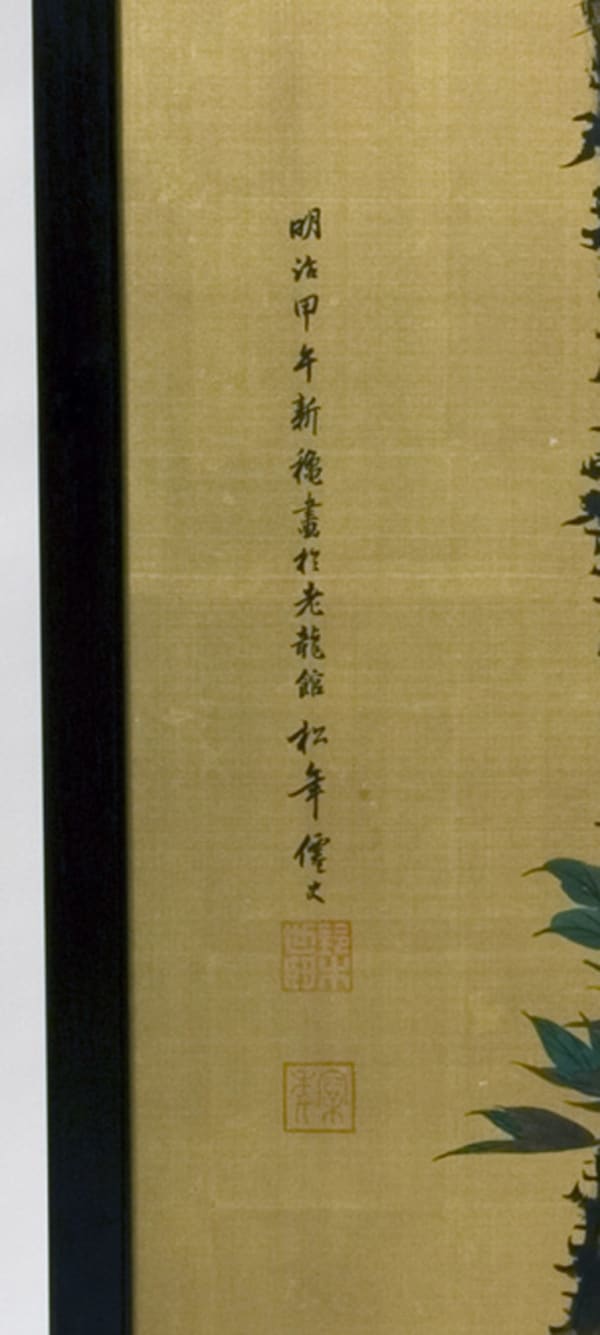 明治甲午新穐畫於老龍館 松年僊史